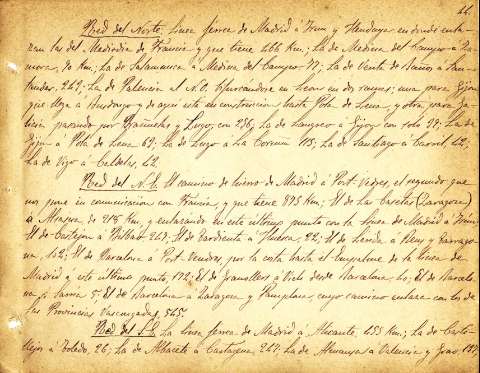 44.
Red del Norte: Línea férrea de Madrid á Irún y Hendaya en donde enla-
zan las del Mediodia de Francia y que tiene 666 Km.; La de Medina del Campo á Za-
mora, 90 Km.; La de Salamanca á Medina del Campo 77; La de Venta de Baños á San-
tander, 242; La de Palencia al N.O. bifurcandose en Leon en dos ramas; una para Gijon
que llega á Busdongo y de aqui está en construccion hasta Pola de Lena, y otra para Ga-
licia pasando por Brañuelas y Lugo, con 236; La de Langreo á Gijon con solo 39; La de
Gijon á Pola de Lena 63; La de Lugo á La Coruña 115; La de Santiago á Carril, 42;
La de Vigo á Caldelas, 42.
Red del N.E. El camino de hierro de Madrid á Port-Vedres, el segundo que
nos pone en comunicacion con Francia, y que tiene 895 Km.; El de Las Casetas (Zaragoza)
á Alsasua de 218 Km. y enlazando en este último punto con la línea de Madrid á Irún;
El de Castejon á Bilbao 249; El de Tardienta á Huesca, 22; El de Lerida á Reus y Tarrago-
na, 102; El de Barcelona á Port-Vendres, por la costa hasta el empalme de la línea de
Madrid á este último punto, 172; El de Granollers á Vich desde Barcelona, 40; El de Barcelo-
na á Sarriá 5; El de Barcelona á Zaragoza y Pamplona, cuyo camino enlaza con los de
las Provincias Vascongadas, 545.
Red del S.E. La línea férrea de Madrid á Alicante, 455 Km.; La de Casti-
llejo á Toledo, 26; La de Albacete á Cartagena, 247; La de Almansa á Valencia y Grao, 137;